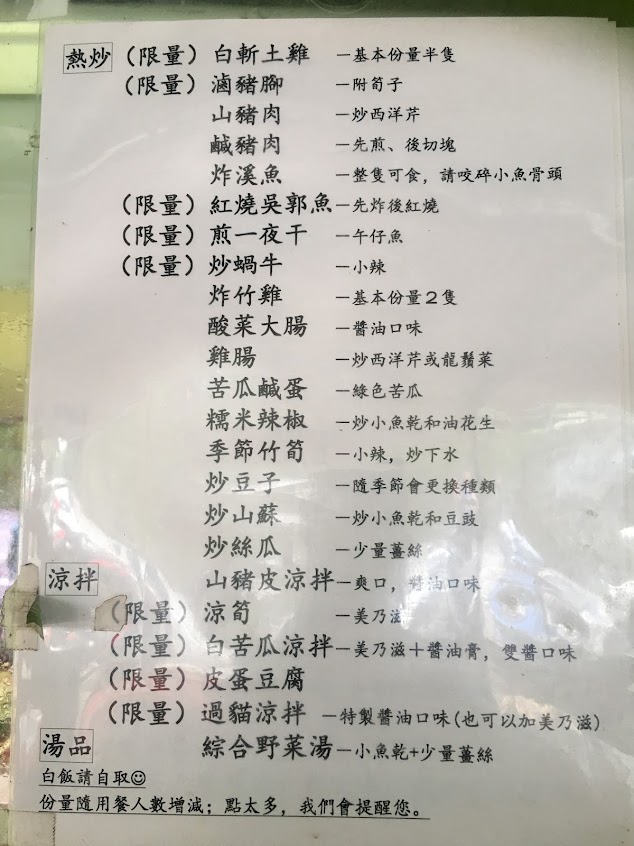 熱炒 (限量) 白斬土雞 －基本份量半隻
(限量) 滷豬腳 －附筍子
山豬肉 －炒西洋芹
鹹豬肉 －先煎、後切塊
炸溪魚 －整隻可食，請咬碎小魚骨頭
(限量) 紅燒吳郭魚－先炸後紅燒
(限量) 煎一夜干 －午仔魚
(限量) 炒蝸牛 －小辣
炸竹雞 －基本份量２隻
酸菜大腸 －醬油口味
雞腸 －炒西洋芹或龍鬚菜
苦瓜鹹蛋 －綠色苦瓜
糯米辣椒 －炒小魚乾和油花生
季節竹筍 －小辣，炒下水
炒豆子 －隨季節會更換種類
炒山蘇 －炒小魚乾和豆豉
炒絲瓜 －少量薑絲
涼拌 山豬皮涼拌－爽口，醬油口味
(限量) 涼筍 －美乃滋
(限量) 白苦瓜涼拌－美乃滋＋醬油膏，雙醬口味
(限量) 皮蛋豆腐
(限量) 過貓涼拌 －特製醬油口味(也可以加美乃滋)
湯品 綜合野菜湯－小魚乾+少量薑絲
白飯請自取☺
份量隨用餐人數增減；點太多，我們會提醒您。